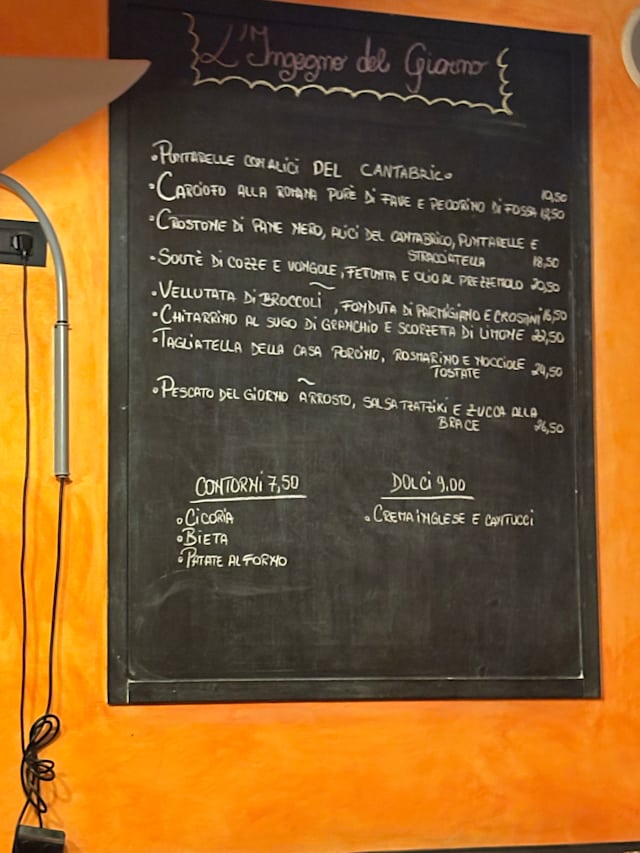 L'Ingegno del Giorno
•PUNTARELLE CON ALICI DEL CANTABRICO
10,50
•CARCIOFO ALLA ROMANA PURÈ DI FAVE E PECORINO DI FOSSA 12,50
•CROSTONE DI PANE NERO, ALICI DEL CANTABRICO, PUNTARELLE E
STRACCIATELLA 18,50
•SOUTÈ DI COZZE E VONGOLE, FETUNTA E OLIO AL PREZZEMOLO 20,50
~
•VELLUTATA DI BROCCOLI, FONDUTA DI PARMIGIANO E CROSTINI 16,50
•CHITARRINO AL SUGO DI GRANCHIO E SCORZETTA DI LIMONE 22,50
•TAGLIATELLA DELLA CASA PORCINO, ROSMARINO E NOCCIOLE 24,50
TOSTATE
~
•PESCATO DEL GIORNO ARROSTO, SALSA TZATZIKI E ZUCCA ALLA
BRACE 26,50
CONTORNI 7,50
•CICORIA
•BIETA
•PATATE AL FORNO
DOLCI 9,00
•CREMA INGLESE E CANTUCCI